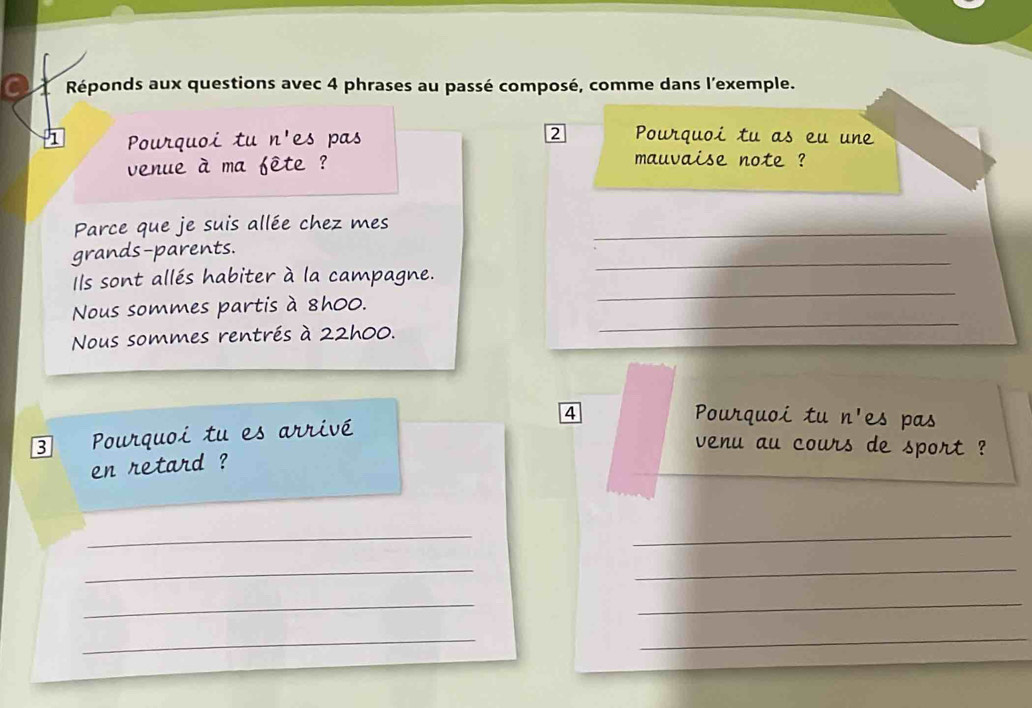 C Réponds aux questions avec 4 phrases au passé composé, comme dans l'exemple.
1 Pourquoi tu n'es pas
venue à ma fête ?
Parce que je suis allée chez mes
grands-parents.
Ils sont allés habiter à la campagne.
Nous sommes partis à 8h00.
Nous sommes rentrés à 22h00.
2 Pourquoi tu as eu une
mauvaise note ?
3 Pourquoi tu es arrivé
en retard ?
4 Pourquoi tu n'es pas
venu au cours de sport ?